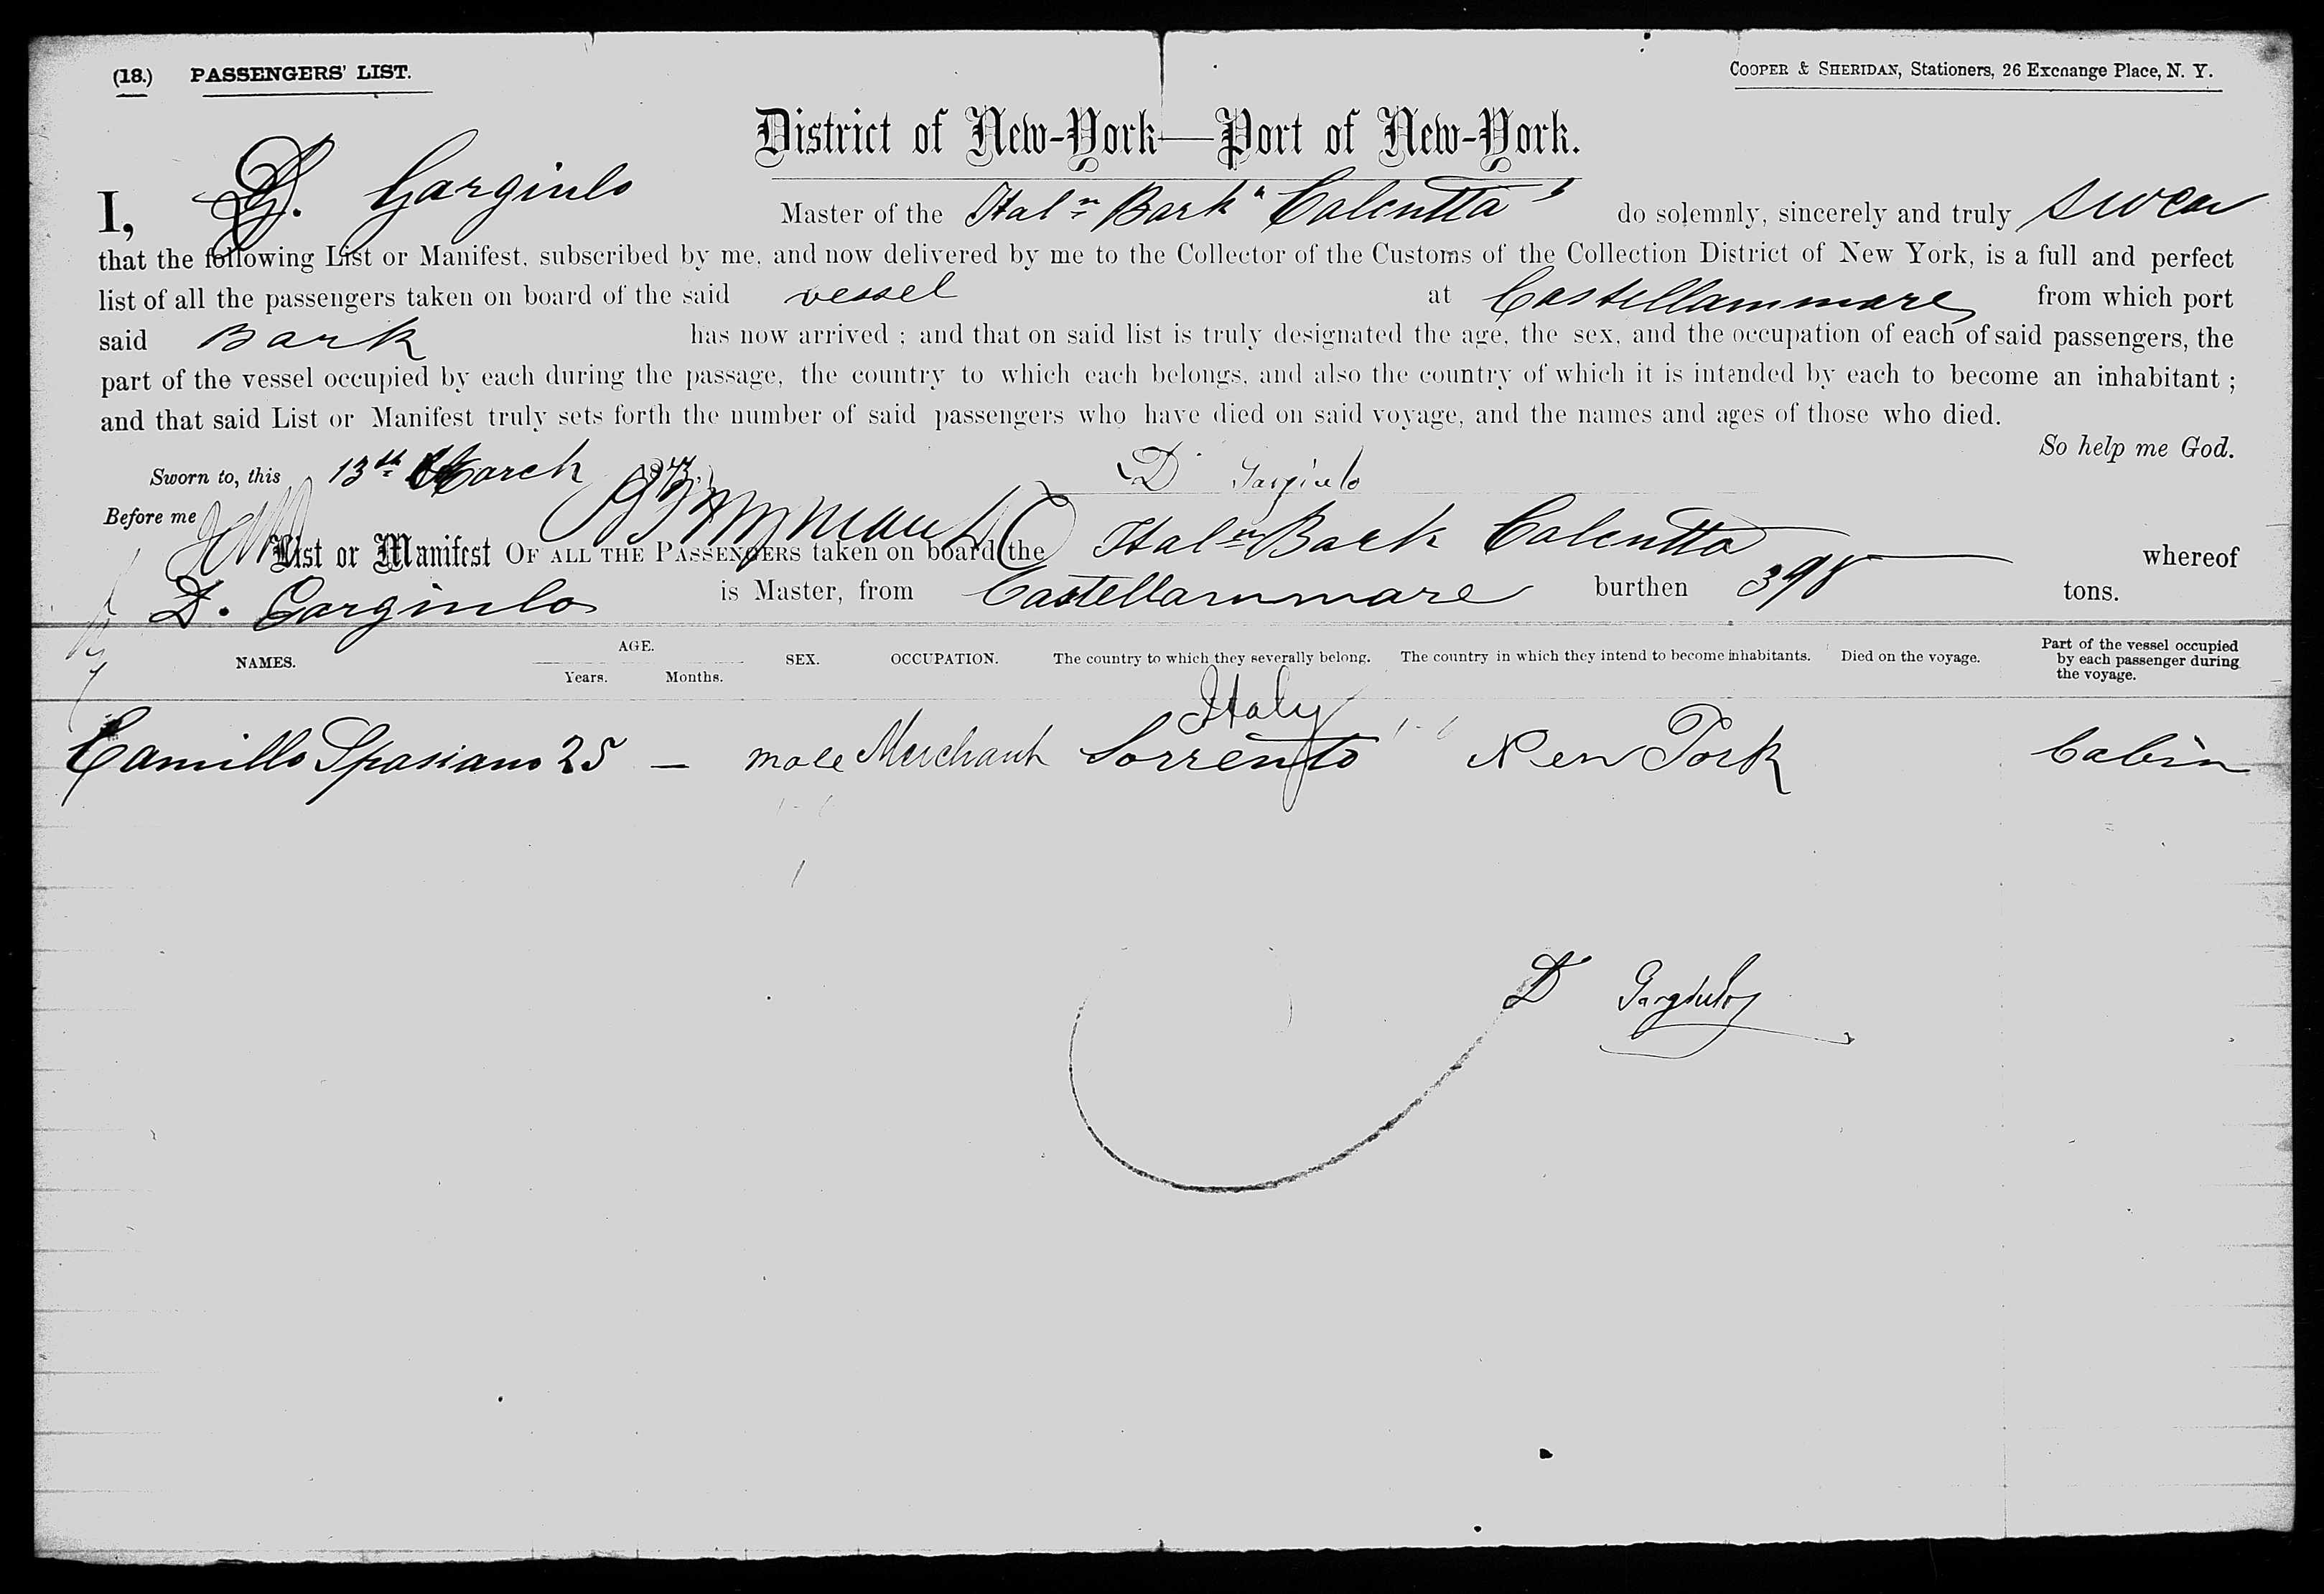 (18.) PASSENGERS' LIST.
COOPER & SHERIDAN, Stationers, 26 Exchange Place, N. Y.
District of New-York—Port of New-York.
I, D. Gargiulo Master of the Ital<sup>n</sup> Bark "Calcutta" do solemnly, sincerely and truly swear
that the following List or Manifest, subscribed by me, and now delivered by me to the Collector of the Customs of the Collection District of New York, is a full and perfect
list of all the passengers taken on board of the said vessel at Castellammare from which port
said Bark has now arrived ; and that on said list is truly designated the age, the sex, and the occupation of each of said passengers, the
part of the vessel occupied by each during the passage, the country to which each belongs, and also the country of which it is intended by each to become an inhabitant ;
and that said List or Manifest truly sets forth the number of said passengers who have died on said voyage, and the names and ages of those who died.
So help me God.
Sworn to, this 13th March 1873. D Gargiulo
Before me
List or Manifest OF ALL THE PASSENGERS taken on board the Ital<sup>n</sup> Bark Calcutta whereof
D. Gargiulo is Master, from Castellammare burthen 398 tons.
NAMES. AGE. Years. Months. SEX. OCCUPATION. The country to which they severally belong. The country in which they intend to become inhabitants. Died on the voyage. Part of the vessel occupied by each passenger during the voyage.
Italy
Camillo Spasiano 25 — male Merchant Sorrento New York Cabin
D Gargiulo